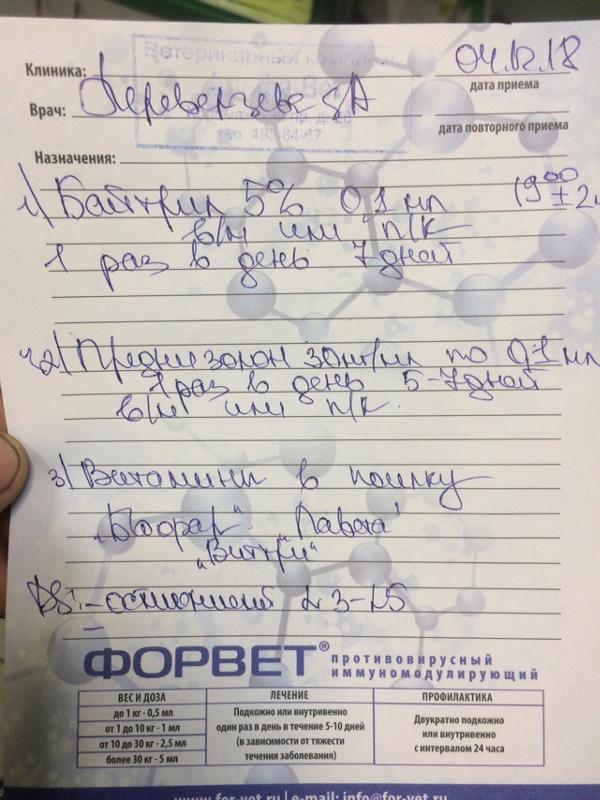 Ветеринарный
Клиника: 04.12.18
дата приема
Врач:
тел. 493-84-67
дата повторного приема
Назначения:
1) Байтрил 5% 0,1 мл (19⁰⁰ ±2
в/м или п/к
1 раз в день 7 дней
2) Преднизолон 30мг/мл по 0,1 мл
1 раз в день 5-7 дней
в/м или п/к.
3) Витамины в поилку
"Гавита"
"Витри"
DS: L3-L5
ФОРВЕТ®
противовирусный
иммуномодулирующий
ВЕС И ДОЗА
до 1 кг - 0,5 мл
от 1 до 10 кг - 1 мл
от 10 до 30 кг - 2,5 мл
более 30 кг - 5 мл
ЛЕЧЕНИЕ
Подкожно или внутривенно
один раз в день в течение 5-10 дней
(в зависимости от тяжести
течения заболевания)
ПРОФИЛАКТИКА
Двукратно подкожно
или внутривенно
с интервалом 24 часа
www.for-vet.ru | e-mail: info@for-vet.ru